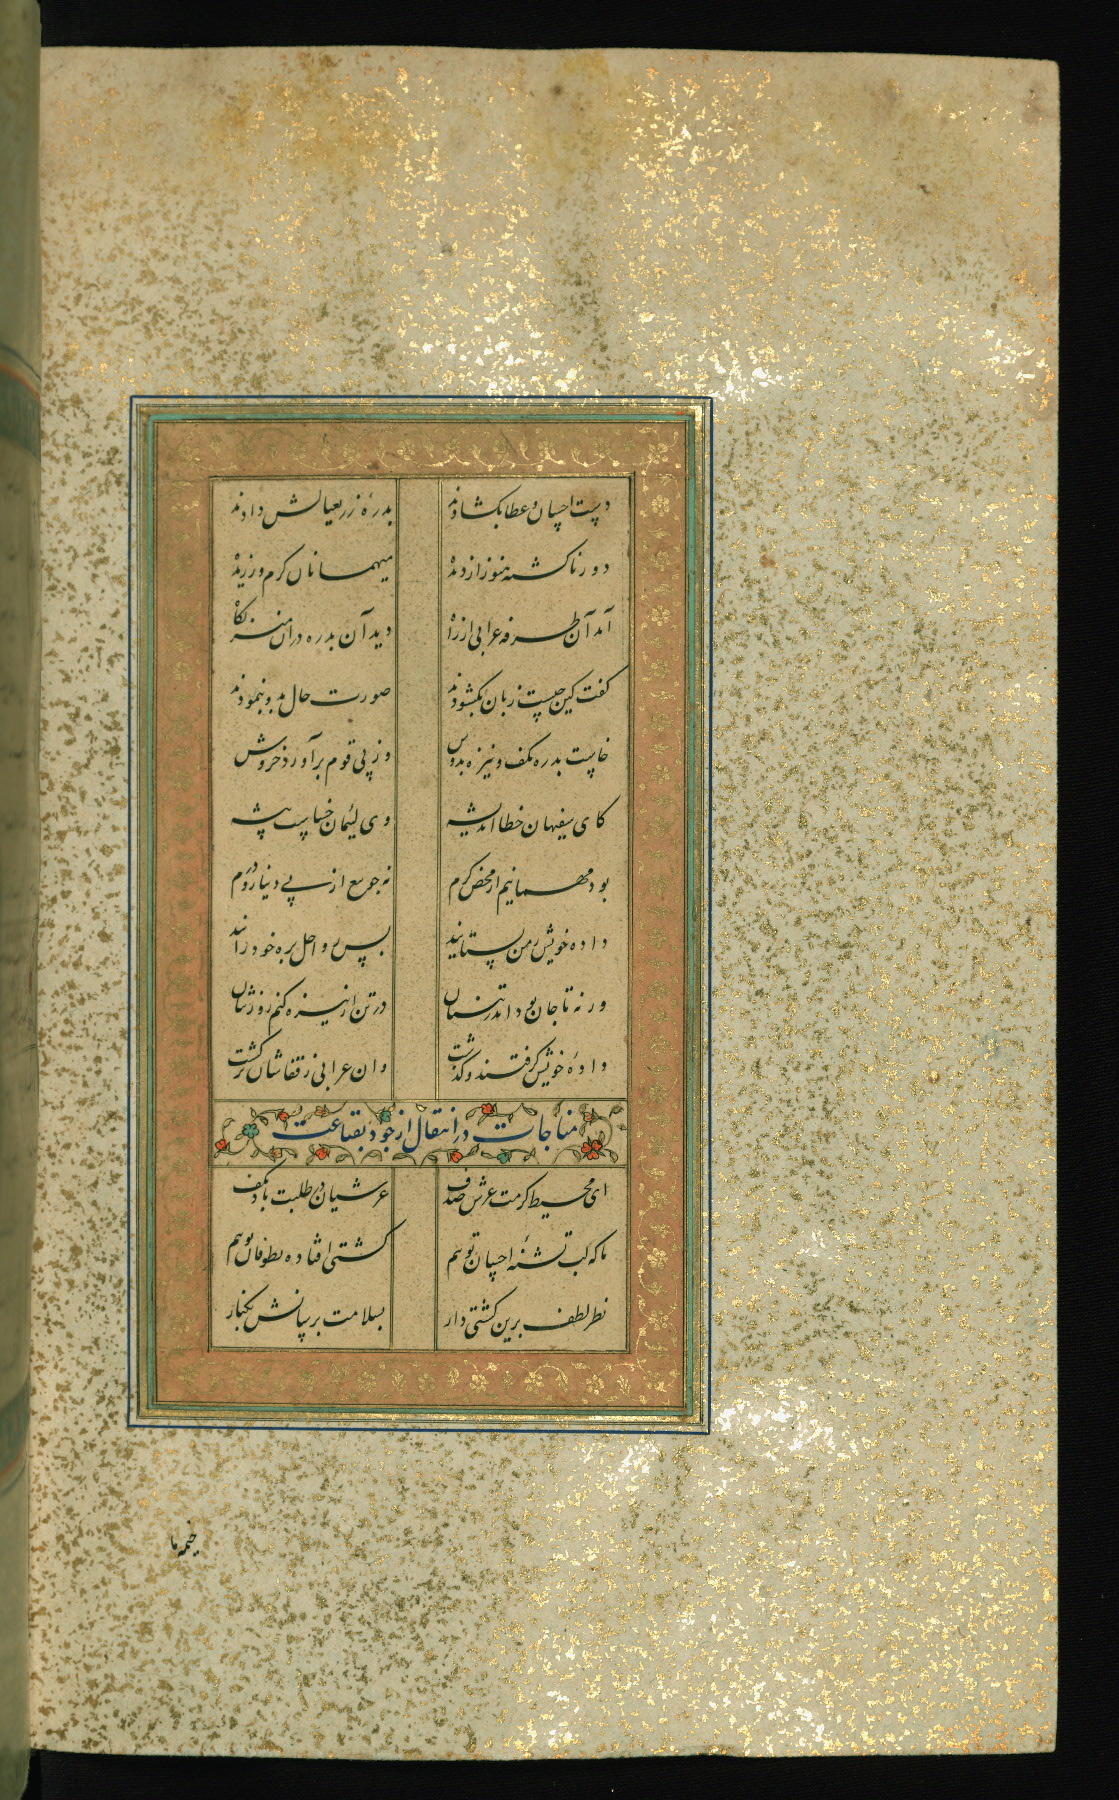 دست احسان و عطا بکشادند بدرهٔ زر بعیالش دادند
دور ناکشته هنوز از دیده میهمانان کرم ورزیده
آمد آن طرفه عرابی از راه دید آن بدره دران منزلگاه
کفت کین چیست زبان بکشودند صورت حال بدو بنمودند
خاست بدره بکف و نیزه بدوش وز پی قوم برآورد خروش
کای سفیهان خطا اندیشه وی لئیمان خساست پیشه
بود مهمانیم از محض کرم نه چو بیع از پی دینار و درم
داده خویش ز من بستانید پس رواحل بره خود رانید
ورنه تا جان بود اندر تنتان در تن از نیزه کنم روزنتان
دادهٔ خویش کرفتند و کذشت وان عرابی ز قفاشان برکشت
مناجات در انتقال از جود بقناعت
ای محیط کرمت عرش صدف عرشیان در طلبت باد بکف
ما که لب تشنهٔ احسان توییم کشتی افتاده بطوفان توییم
نظر لطف برین کشتی دار بسلامت برسانش بکنار
خیمه ما